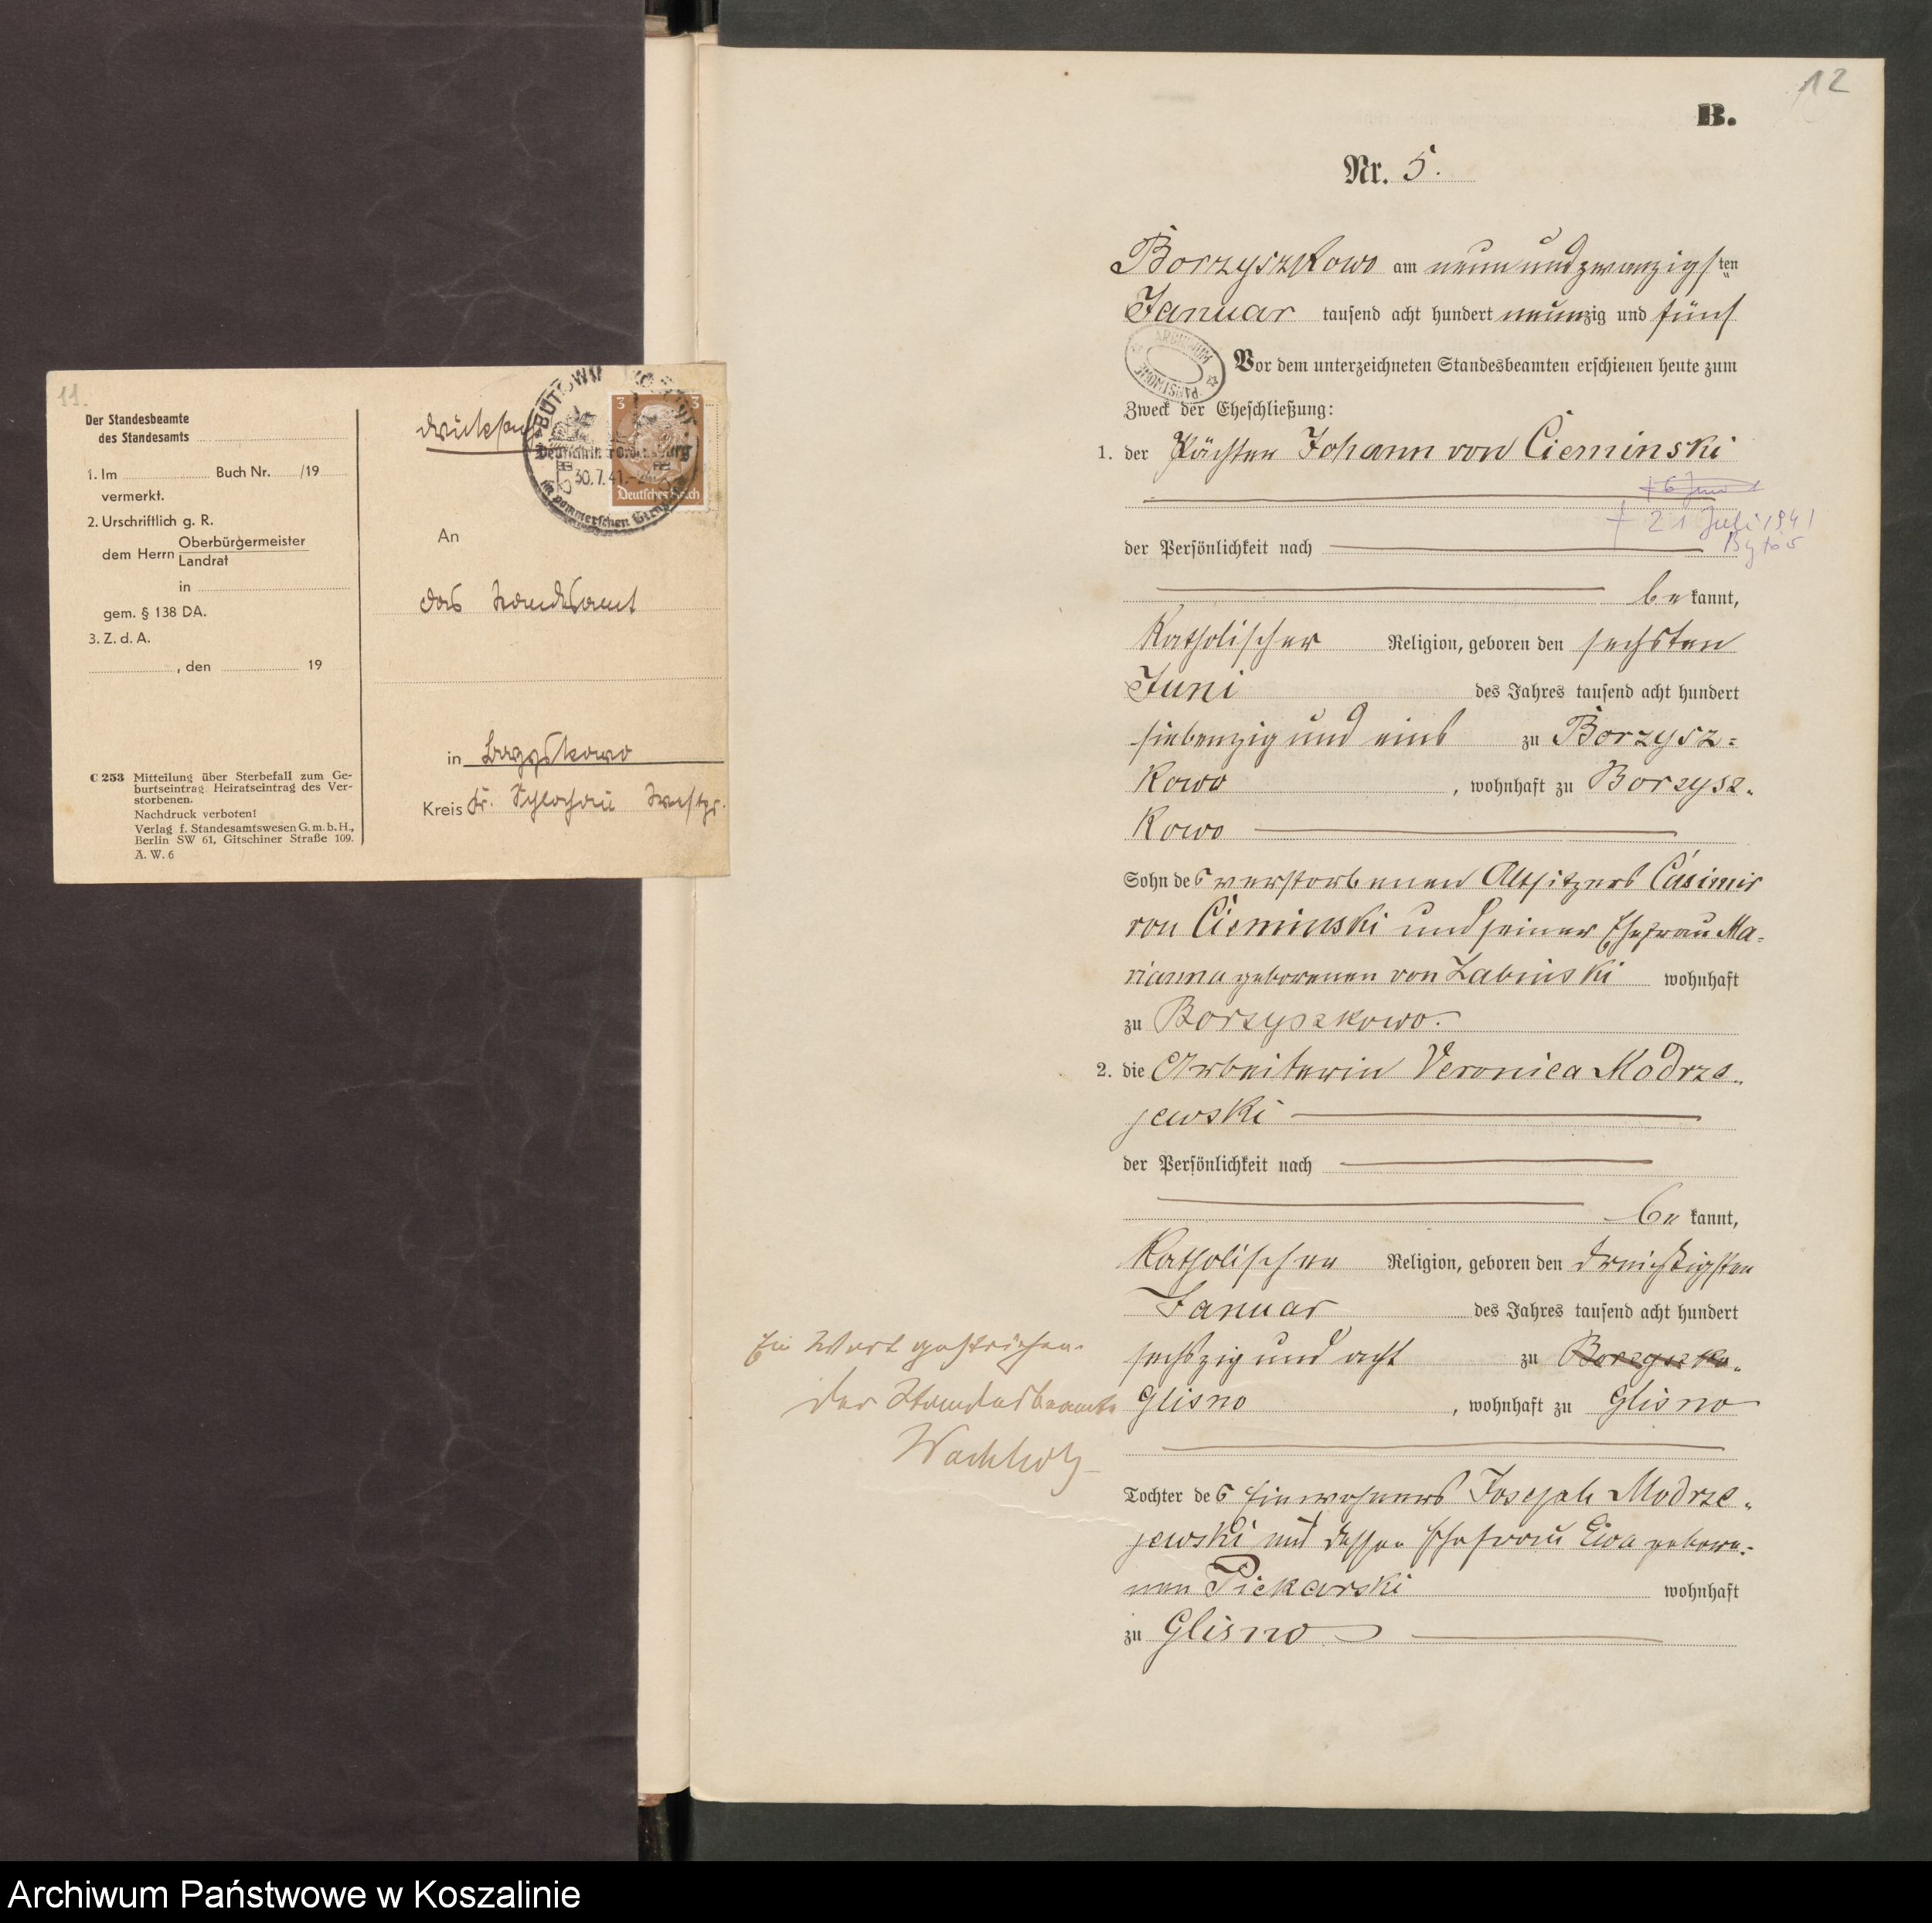 11.
Der Standesbeamte
des Standesamts
1. Im Buch Nr. /19
vermerkt.
2. Urschriftlich g. R.
dem Herrn Oberbürgermeister
Landrat
in
gem. § 138 DA.
3. Z. d. A.
, den 19
C 253 Mitteilung über Sterbefall zum Ge-
burtseintrag Heiratseintrag des Ver-
storbenen.
Nachdruck verboten!
Verlag f. Standesamtswesen G. m. b. H.,
Berlin SW 61, Gitschiner Straße 109.
A. W. 6
Drucksache
30.7.41
im pommerschen
3 3
Deutsches Reich
An
das Standesamt
in
Kreis Kr. Schlochau Westpr.
12
B.
Nr. 5.
Borzyszkowo am neunundzwanzigsten
Januar tausend acht hundert neunzig und fünf
ARCHIWUM PAŃSTWOWE
Vor dem unterzeichneten Standesbeamten erschienen heute zum
Zweck der Eheschließung:
1. der Pächter Johann von Cieminski
† 6 Juni
† 21 Juli 1941
Bytów
der Persönlichkeit nach
be kannt,
katholischer Religion, geboren den sechsten
Juni des Jahres tausend acht hundert
siebenzig und eins zu Borzysz=
kowo , wohnhaft zu Borzysz=
kowo
Sohn des verstorbenen Altsitzers Casimir
von Cieminski und seiner Ehefrau Ma=
rianna geborenen von Labinski wohnhaft
zu Borzyszkowo.
2. die Arbeiterin Veronica Modrze=
jewski
der Persönlichkeit nach
be kannt,
katholischer Religion, geboren den dreißigsten
Januar des Jahres tausend acht hundert
sechszig und acht zu Borzyszko=
Glisno , wohnhaft zu Glisno
Ein Wort gestrichen.
Der Standesbeamte
Wachholz
Tochter des Einwohners Joseph Modrze=
jewski und dessen Ehefrau Eva gebore=
nen Piekarski wohnhaft
zu Glisno
Archiwum Państwowe w Koszalinie